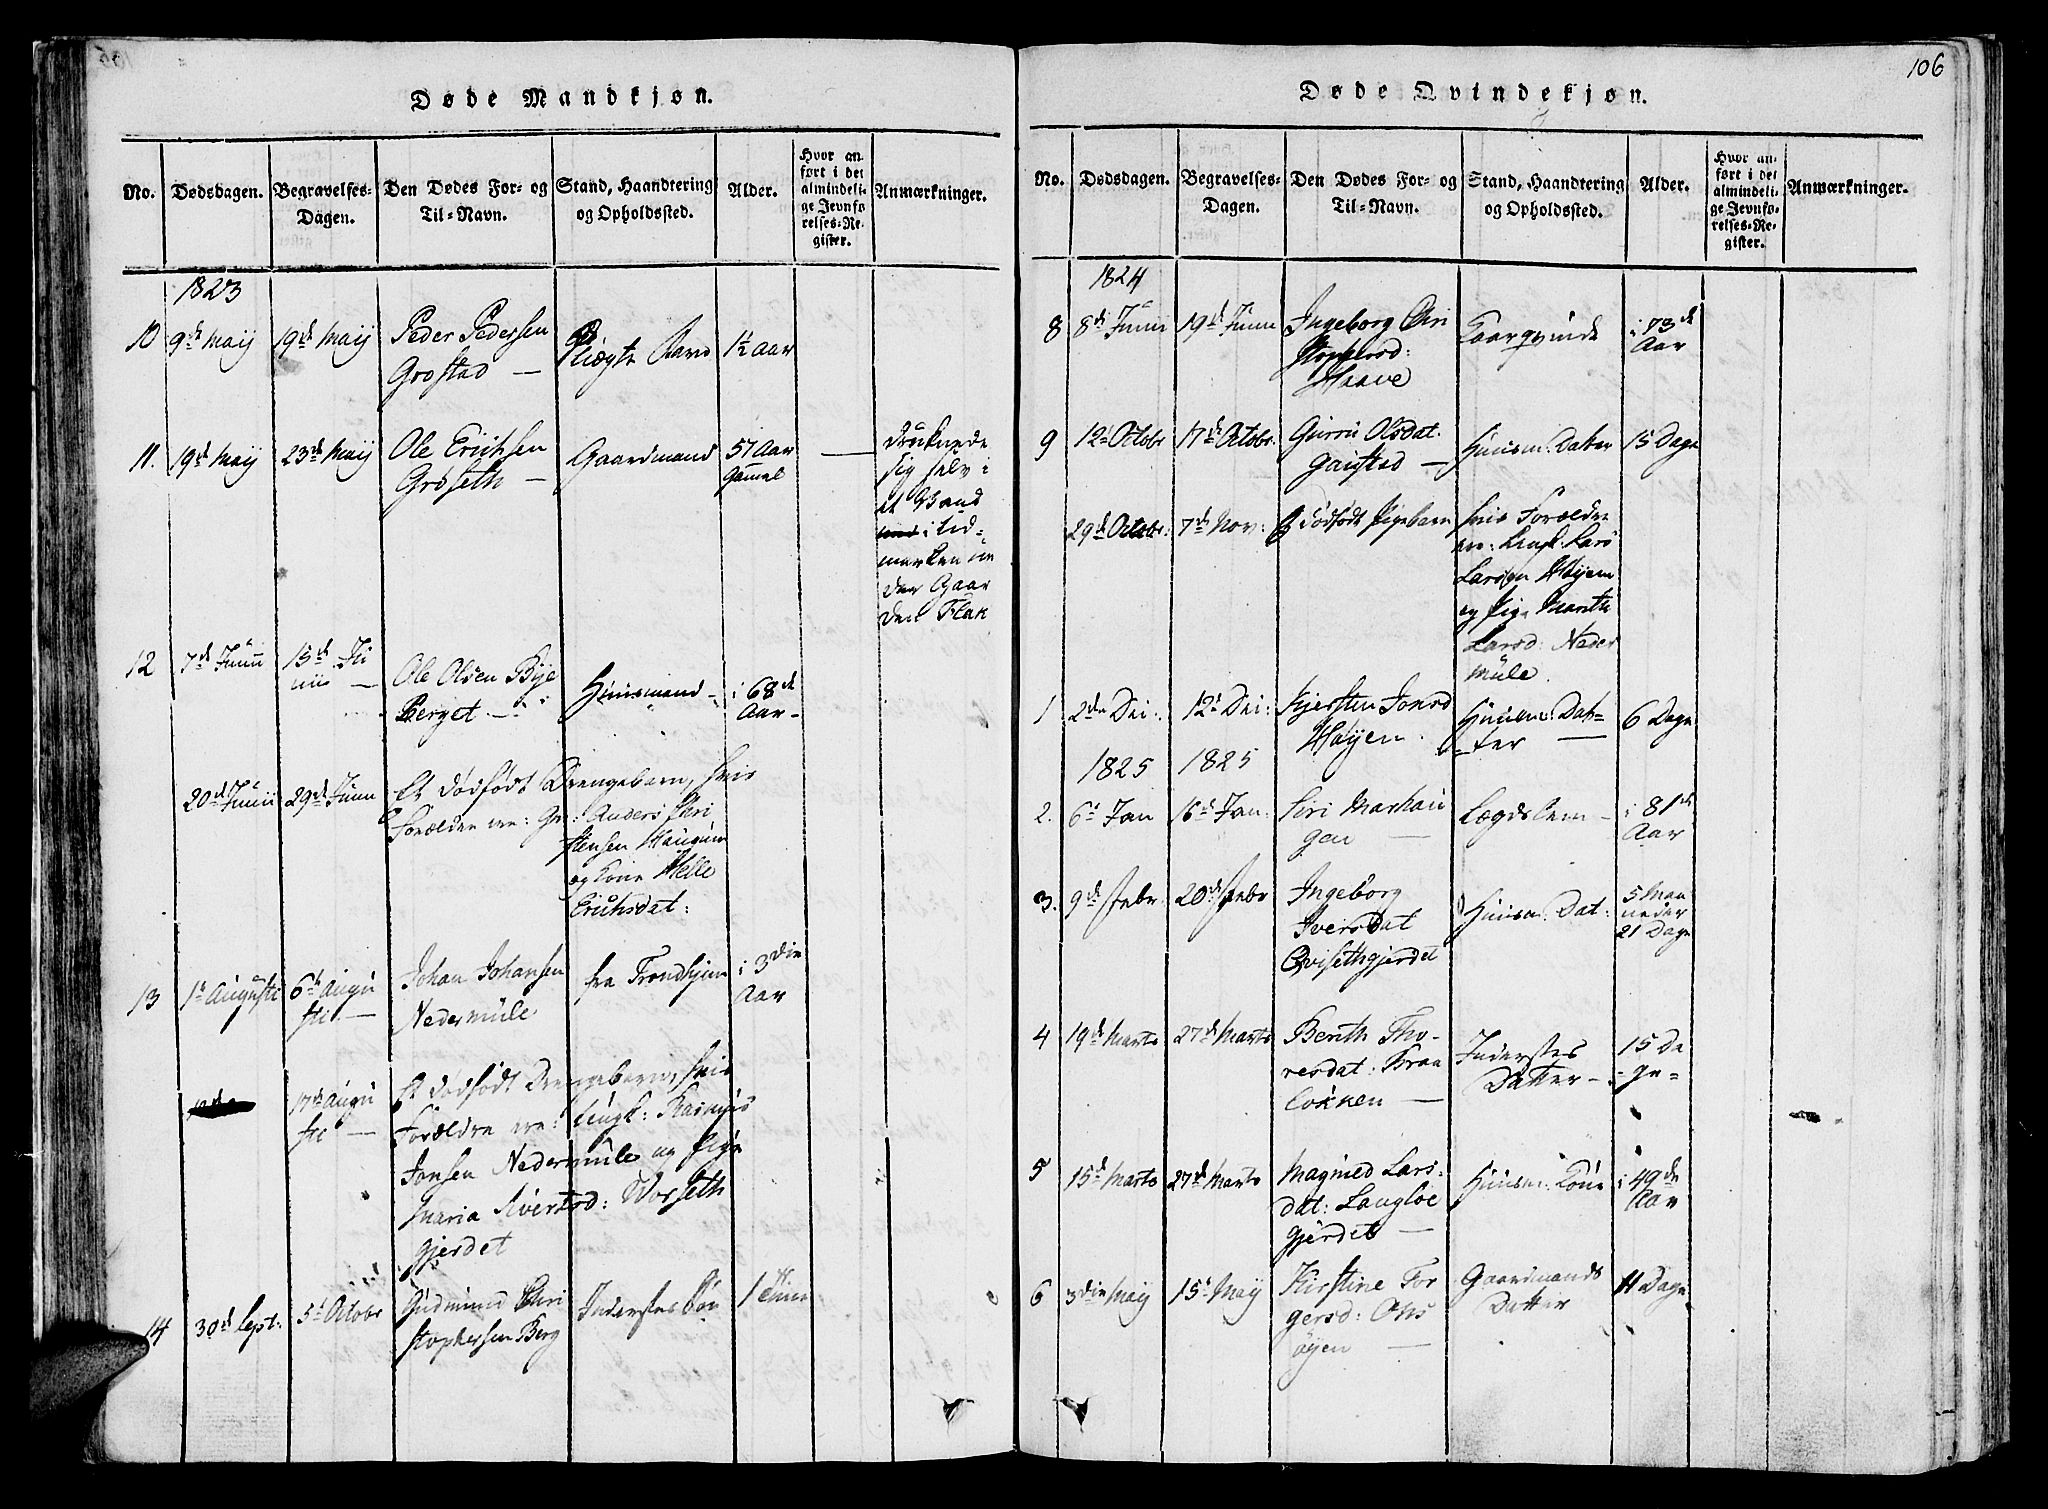 106
Døde Mandkjøn.
No.
Dødsdagen.
Begravelses-
Dagen.
Den Dødes For- og
Til-Navn.
Stand, Haandtering
og Opholdssted.
Alder.
Hvor an-
ført i det
almindeli-
ge Jevnfø
relses-Re-
gister.
Anmærkninger.
1823
10
9de Maij
19de Maij
Peder Pedersen
Grostad —
Pliegte Barn
1½ Aar
11.
19de Maij
23de Maij
Ole Erichsen
Grøseth —
Gaardmand
57 Aar
Gamel
druknede
sig selv i
et Vand
i Ud-
marken
den Gaar
den Flak
12
7de Junii
15de Ju
nii —
Ole Olsen Bye
Berget —
Huusmand
i 68de
Aar
20de Junii
29de Junii
Et dødfødt Drengebarn, hvis
Forældre ere: Gr: Anders Chri
stensen Haugum
og Kone Melle
Erichsdat:
13
1te Augusti
6te Augu
sti —
Johan Johansen
Nedermüle
fra Trondhjem
i 3die
Aar
17de Augu
sti —
Et dødfødt Drengebarn, hvis
Forældre ere: Ungk: Rasmus
Jonsen Nedermüle og Pige
Maria Sivertsd: Worseth
gjerdet
14
30de Sept:
5te Octobr
Gudmund Chri
stophersen Berg
Inderstes Søn
1 Time
Døde Qvindekjøn.
No.
Dødsdagen.
Begravelses-
Dagen.
Den Dødes For- og
Til-Navn.
Stand, Haandtering
og Opholdssted.
Alder.
Hvor an-
ført i det
almindeli-
ge Jevnfø-
relses-Re-
gister.
Anmærkninger.
1824
8
8de Junii
19de Junii
Ingeborg Chri
stophersd:
Haave
Kaarqvinde
i 73de
Aar
9
12te Octobr
17de Octobr.
Gurru Olsdat.
Gaustad —
Huusm: Datter
15 Dage
29de Octobr:
7de Nov:
Et dødfødt Pigebarn
hvis Forældre
ere: Ungk: Lars
Larsen Høyem
og Pige Marith
Larsd: Neder
müle.
1
2den Dec:
12te Dec:
Kjersten Jonsd
Høyem.
Huusm: Dat-
ter —
6 Dage
1825
1825
2.
6te Jan
16de Jan:
Siri Marhau
gen —
Lægdslem —
i 81de
Aar
3.
9de Febr
20de Febr
Ingeborg
Iversdat
Qvisethgjerdet
Huusm: Dat:
5 Maa
neder
21 Dage
4
19de Marts
27de Marts
Berith Tho-
resdat: Kraa
lökken —
Inderstes
Datter —
15 Da
ge —
5
15de Marts
27de Marts
Magnild Lars-
dat: Langløe
gjerdet —
Huusm: Kone
i 49de
Aar
6
3die Maij
15de Maij
Kirstine Tor
gersd: Ons
øyen —
Gaardmands
Datter
11 Dage